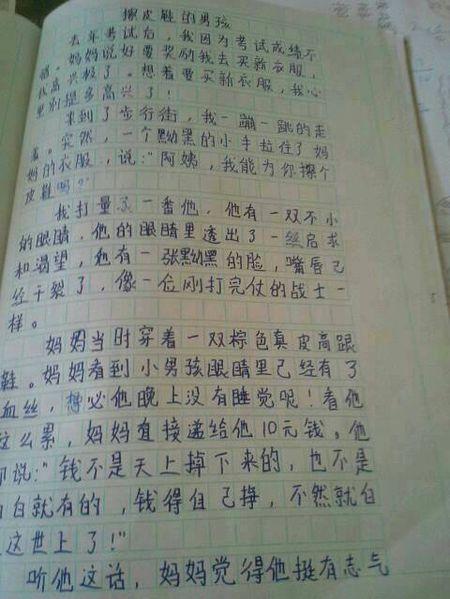 擦皮鞋的男孩
去年考试后，我因为考试成绩不
错，妈妈说好要奖励我去买新衣服，
我高兴极了。想着要买新衣服，我心
里别提多高兴了！
来到了步行街，我一蹦一跳的走
着。突然，一个黝黑的小手拉住了妈
妈的衣服，说：“阿姨，我能为你擦个
皮鞋吗？”
我打量了一番他，他有一双不小
的眼睛，他的眼睛里透出了一丝启求
和渴望，他有一张黝黑的脸，嘴唇已
经干裂了，像一位刚打完仗的战士一
样。
妈妈当时穿着一双棕色真皮高跟
鞋。妈妈看到小男孩眼睛里已经有了
血丝，想必他晚上没有睡觉呢！看他
这么累，妈妈直接递给他10元钱。他
却说：“钱不是天上掉下来的，也不是
白白就有的，钱得自己挣，不然就白
这世上了！”
听他这话，妈妈觉得他挺有志气